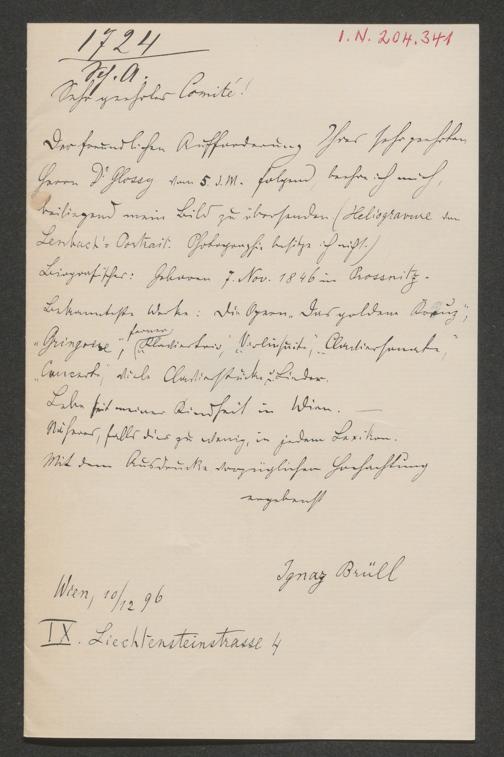 1724
I.N. 204.341
Sch. A.
Sehr geehrtes Comité!
Der freundlichen Aufforderung Ihres sehr geehrten
Herrn Dr Glossy vom 5. d.M. folgend, beehre ich mich,
beiliegend mein Bild zu übersenden (Heliogravure von
Lenbach's Portrait. Photographie besitze ich nicht.)
Biografisches: Geboren 7. Nov. 1846 in Prossnitz.
Bekannteste Werke: Die Opern „Das goldene Kreuz",
„Gringoire", ferner („Claviertrio", Violinsuite", „Claviersonate",
„Concerte", viele Clavierstücke u. Lieder.
Lebe seit meiner Kindheit in Wien. —
Näheres, falls dies zu wenig, in jedem Lexikon.
Mit dem Ausdrucke vorzüglicher Hochachtung
ergebenst
Ignaz Brüll
Wien, 10/12 96
IX. Liechtensteinstrasse 4